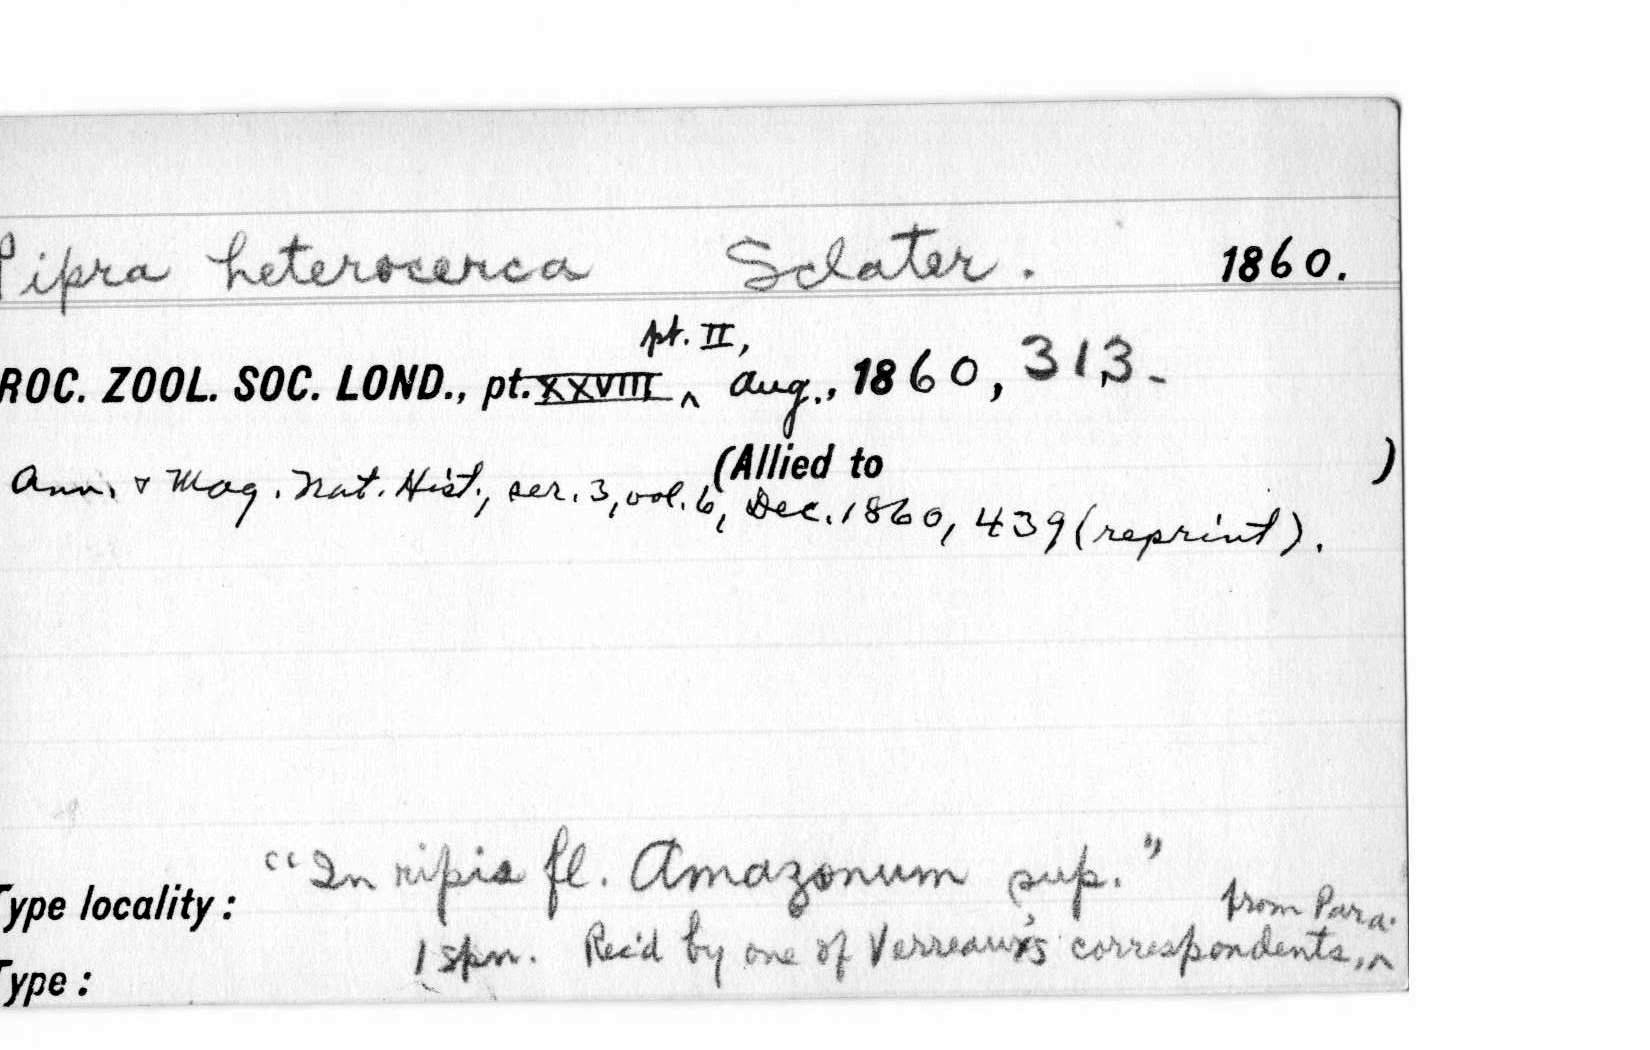 Pipra heterocerca Sclater. 1860.
pt. II,
ROC. ZOOL. SOC. LOND., pt. XXVIII ^ Aug., 1860, 313.
(Allied to )
Ann. & Mag. Nat. Hist., ser. 3, vol. 6, Dec. 1860, 439 (reprint).
Type locality: "In ripis fl. Amazonum sup."
from Para.
Type: 1 spm. Rec'd by one of Verreaux's correspondents, ^